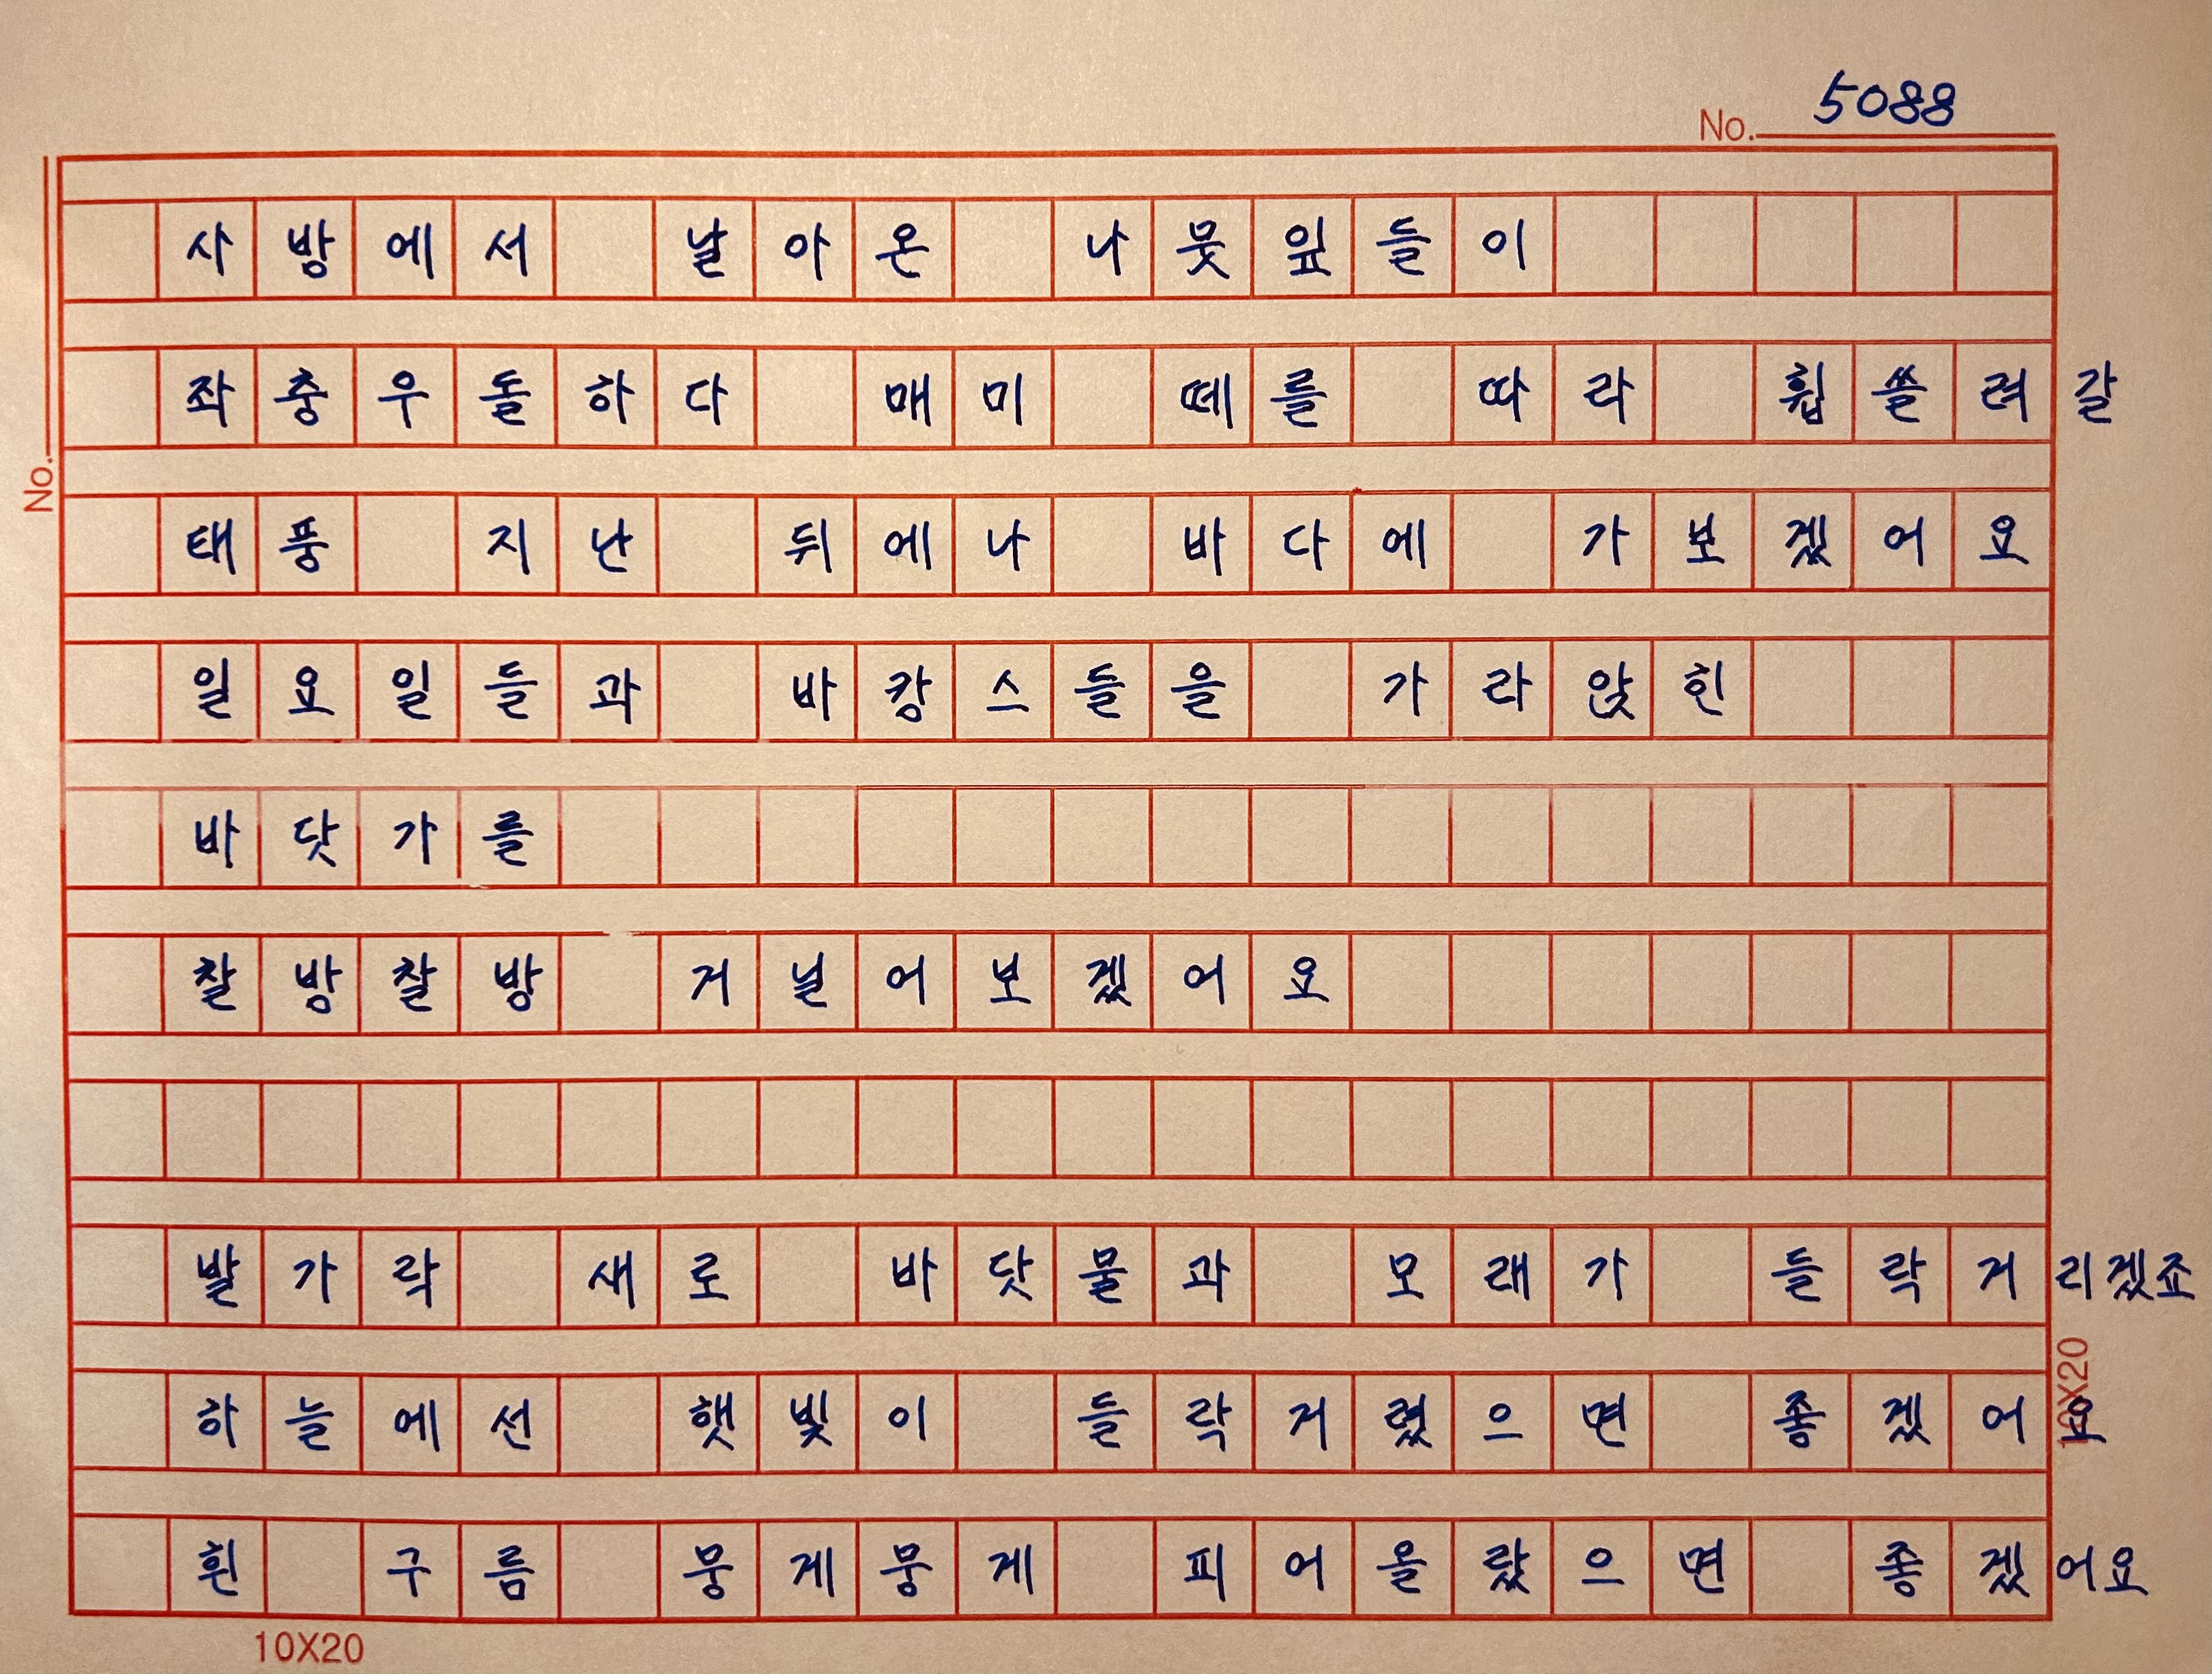 No. 5088
사방에서 날아온 나뭇잎들이
좌충우돌하다 매미 떼를 따라 휩쓸려갈
No.
태풍 지난 뒤에나 바다에 가보겠어요
일요일들과 바캉스들을 가라앉힌
바닷가를
찰방찰방 거닐어보겠어요
발가락 새로 바닷물과 모래가 들락거리겠죠
하늘에선 햇빛이 들락거렸으면 좋겠어요
10X20
흰 구름 뭉게뭉게 피어올랐으면 좋겠어요
10X20